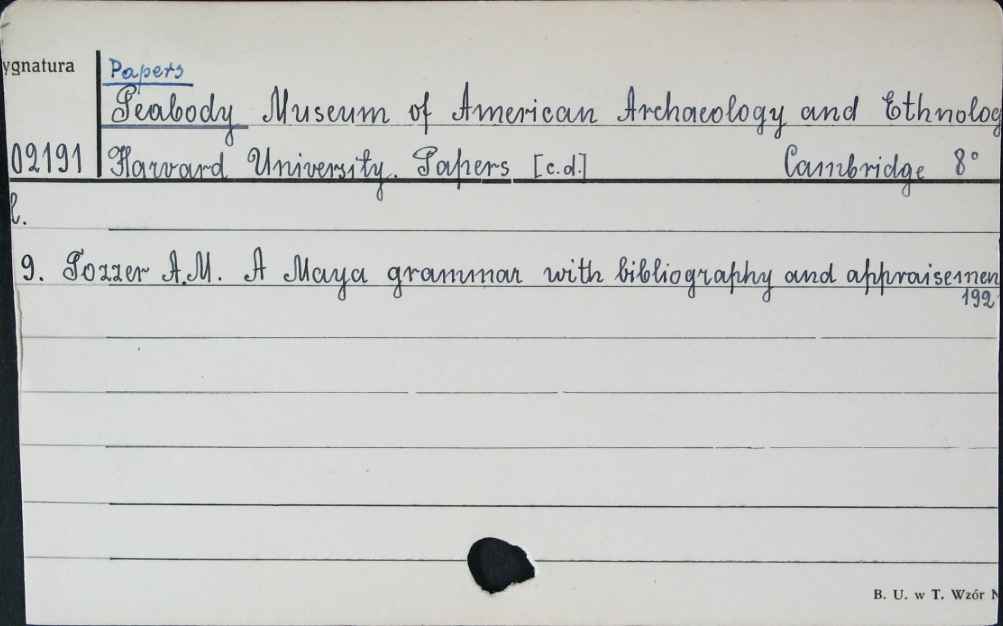 ygnatura
Papers
Peabody Museum of American Archaeology and Ethnolog
02191 Harvard University. Papers [c.d.] Cambridge 8°
l.
9. Tozzer A.M. A Maya grammar with bibliography and appraisemen
192
B. U. w T. Wzór N